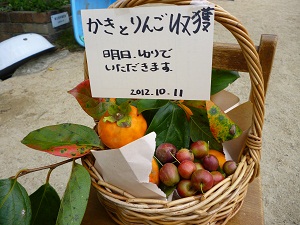 かきとりんご収獲
明日、ゆりで
いただきます
2012.10.11